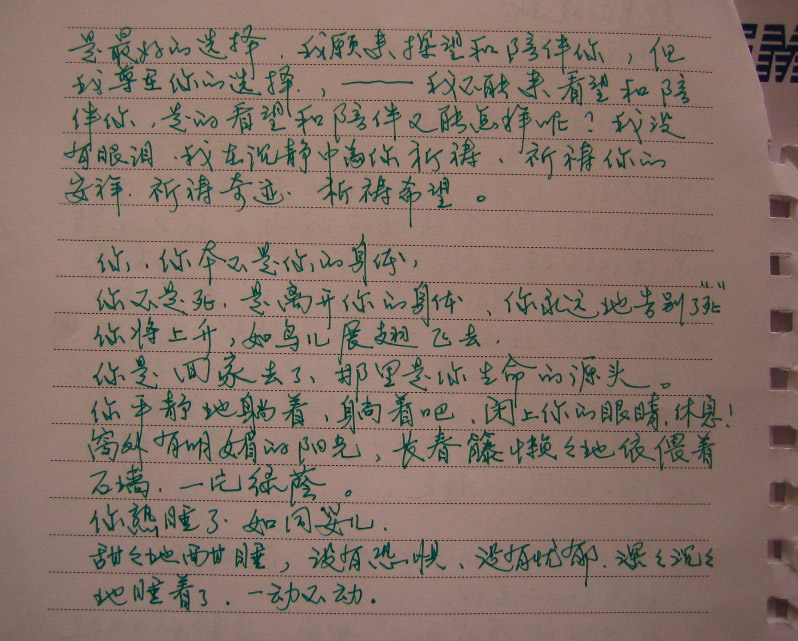 是最好的选择，我愿来探望和陪伴你，但
我尊重你的选择，——我不能来看望和陪
伴你，是的看望和陪伴又能怎样呢？我没
有眼泪，我在沉静中为你祈祷、祈祷你的
安祥．祈祷奇迹．祈祷希望。
你，你本不是你的身体，
你不是死，是离开你的身体，你永远地告别了“死”
你将上升，如鸟儿展翅飞去．
你是回家去了，那里是你生命的源头。
你平静地躺着，躺着吧，闭上你的眼睛，休息！
窗外有明媚的阳光，长春藤懒々地依偎着
石墙．一片绿荫。
你熟睡了．如同婴儿．
甜々地酣睡，没有恐惧、没有忧郁．深々沉々
地睡着了．一动不动．